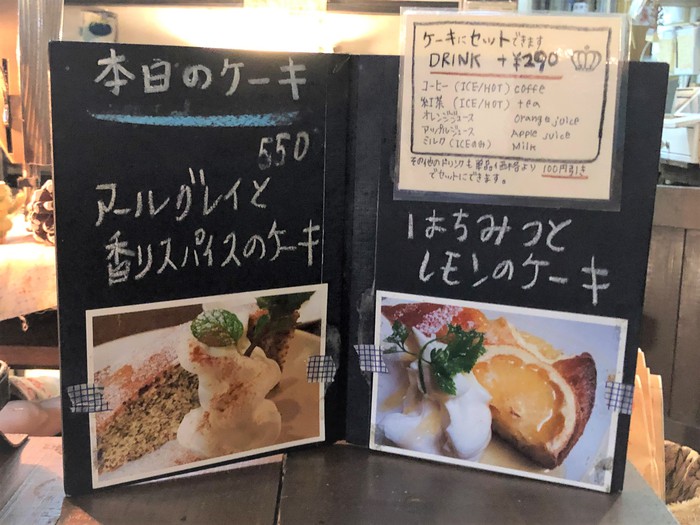 本日のケーキ
550
アールグレイと
香りスパイスのケーキ
ケーキにセットできます
DRINK +¥290
コーヒー (ICE/HOT) coffe
紅茶 (ICE/HOT) tea
オレンジジュース Orange juice
アップルジュース Apple juice
ミルク (ICEのみ) Milk
その他のドリンクも単品価格より 100円引き
でセットにできます。
はちみつと
レモンのケーキ